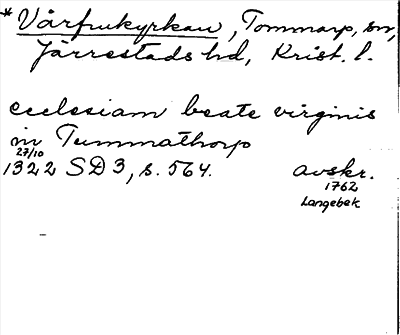 * Vårfrukyrkan, Tommarp, sn,
Järrestads hd, Krist. l.
ecclesiam beate virginis
in Tummathorp
27/10
1322 SD 3, s. 564. avskr.
1762
Langebek